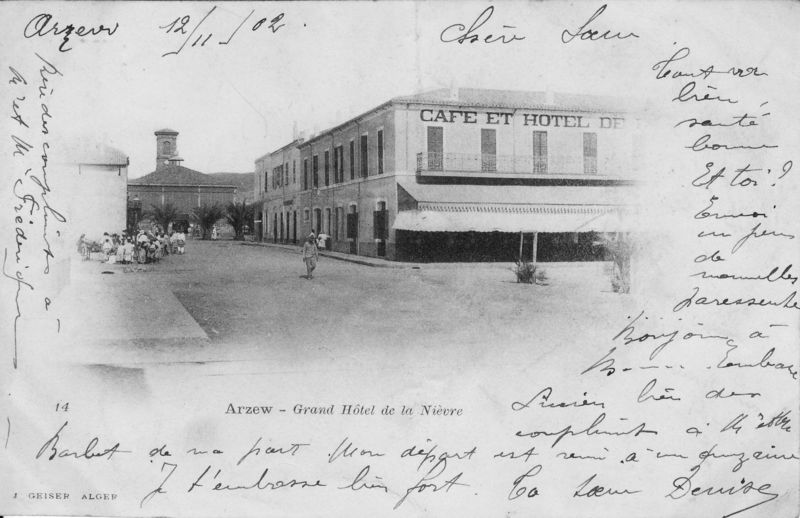 Arzew 12/11-02.
Chère Sœur
Tout va
bien,
santé
bonne
Et toi?
Envoi
un peu
de
nouvelles
paresseuse
Bonjour à
Embrasse
bien des
compliments à Mr et Mme
Barbet de ma part Mon départ est remi à un quinzaine
Je t'embrasse bien fort. Ta Sœur Denise
bien des compliments à
Mr et Me Frédérique
CAFE ET HOTEL DE
14
Arzew - Grand Hôtel de la Nièvre
J. GEISER ALGER